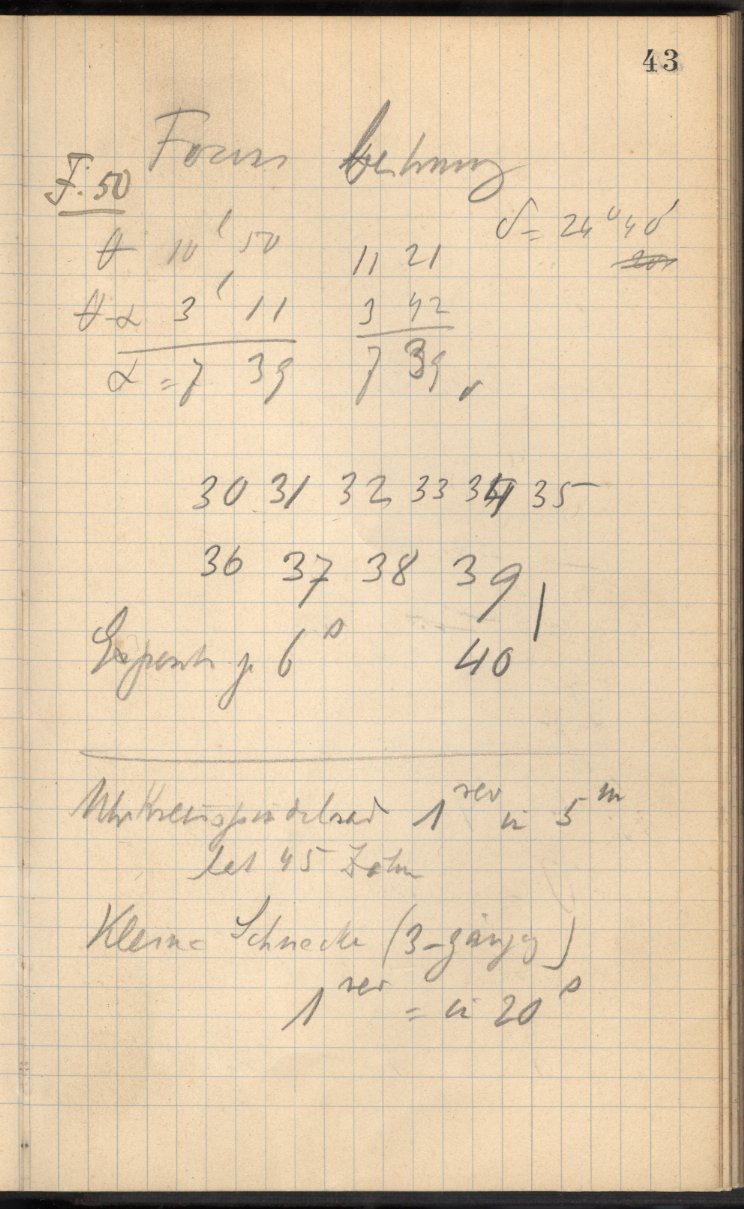 43
Focus bestimmung
F. 50
δ = 24° 40'
θ 10' 50 11 21
θ-α 3' 11 3 42
α = 7 39 7 39
30 31 32 33 34 35
36 37 38 39
je 6 s 40
Uhrkreisspindelrad 1 rev in 5 m
hat 45 Zähne
Kleine Schnecke (3-gängig)
1 rev = in 20 s